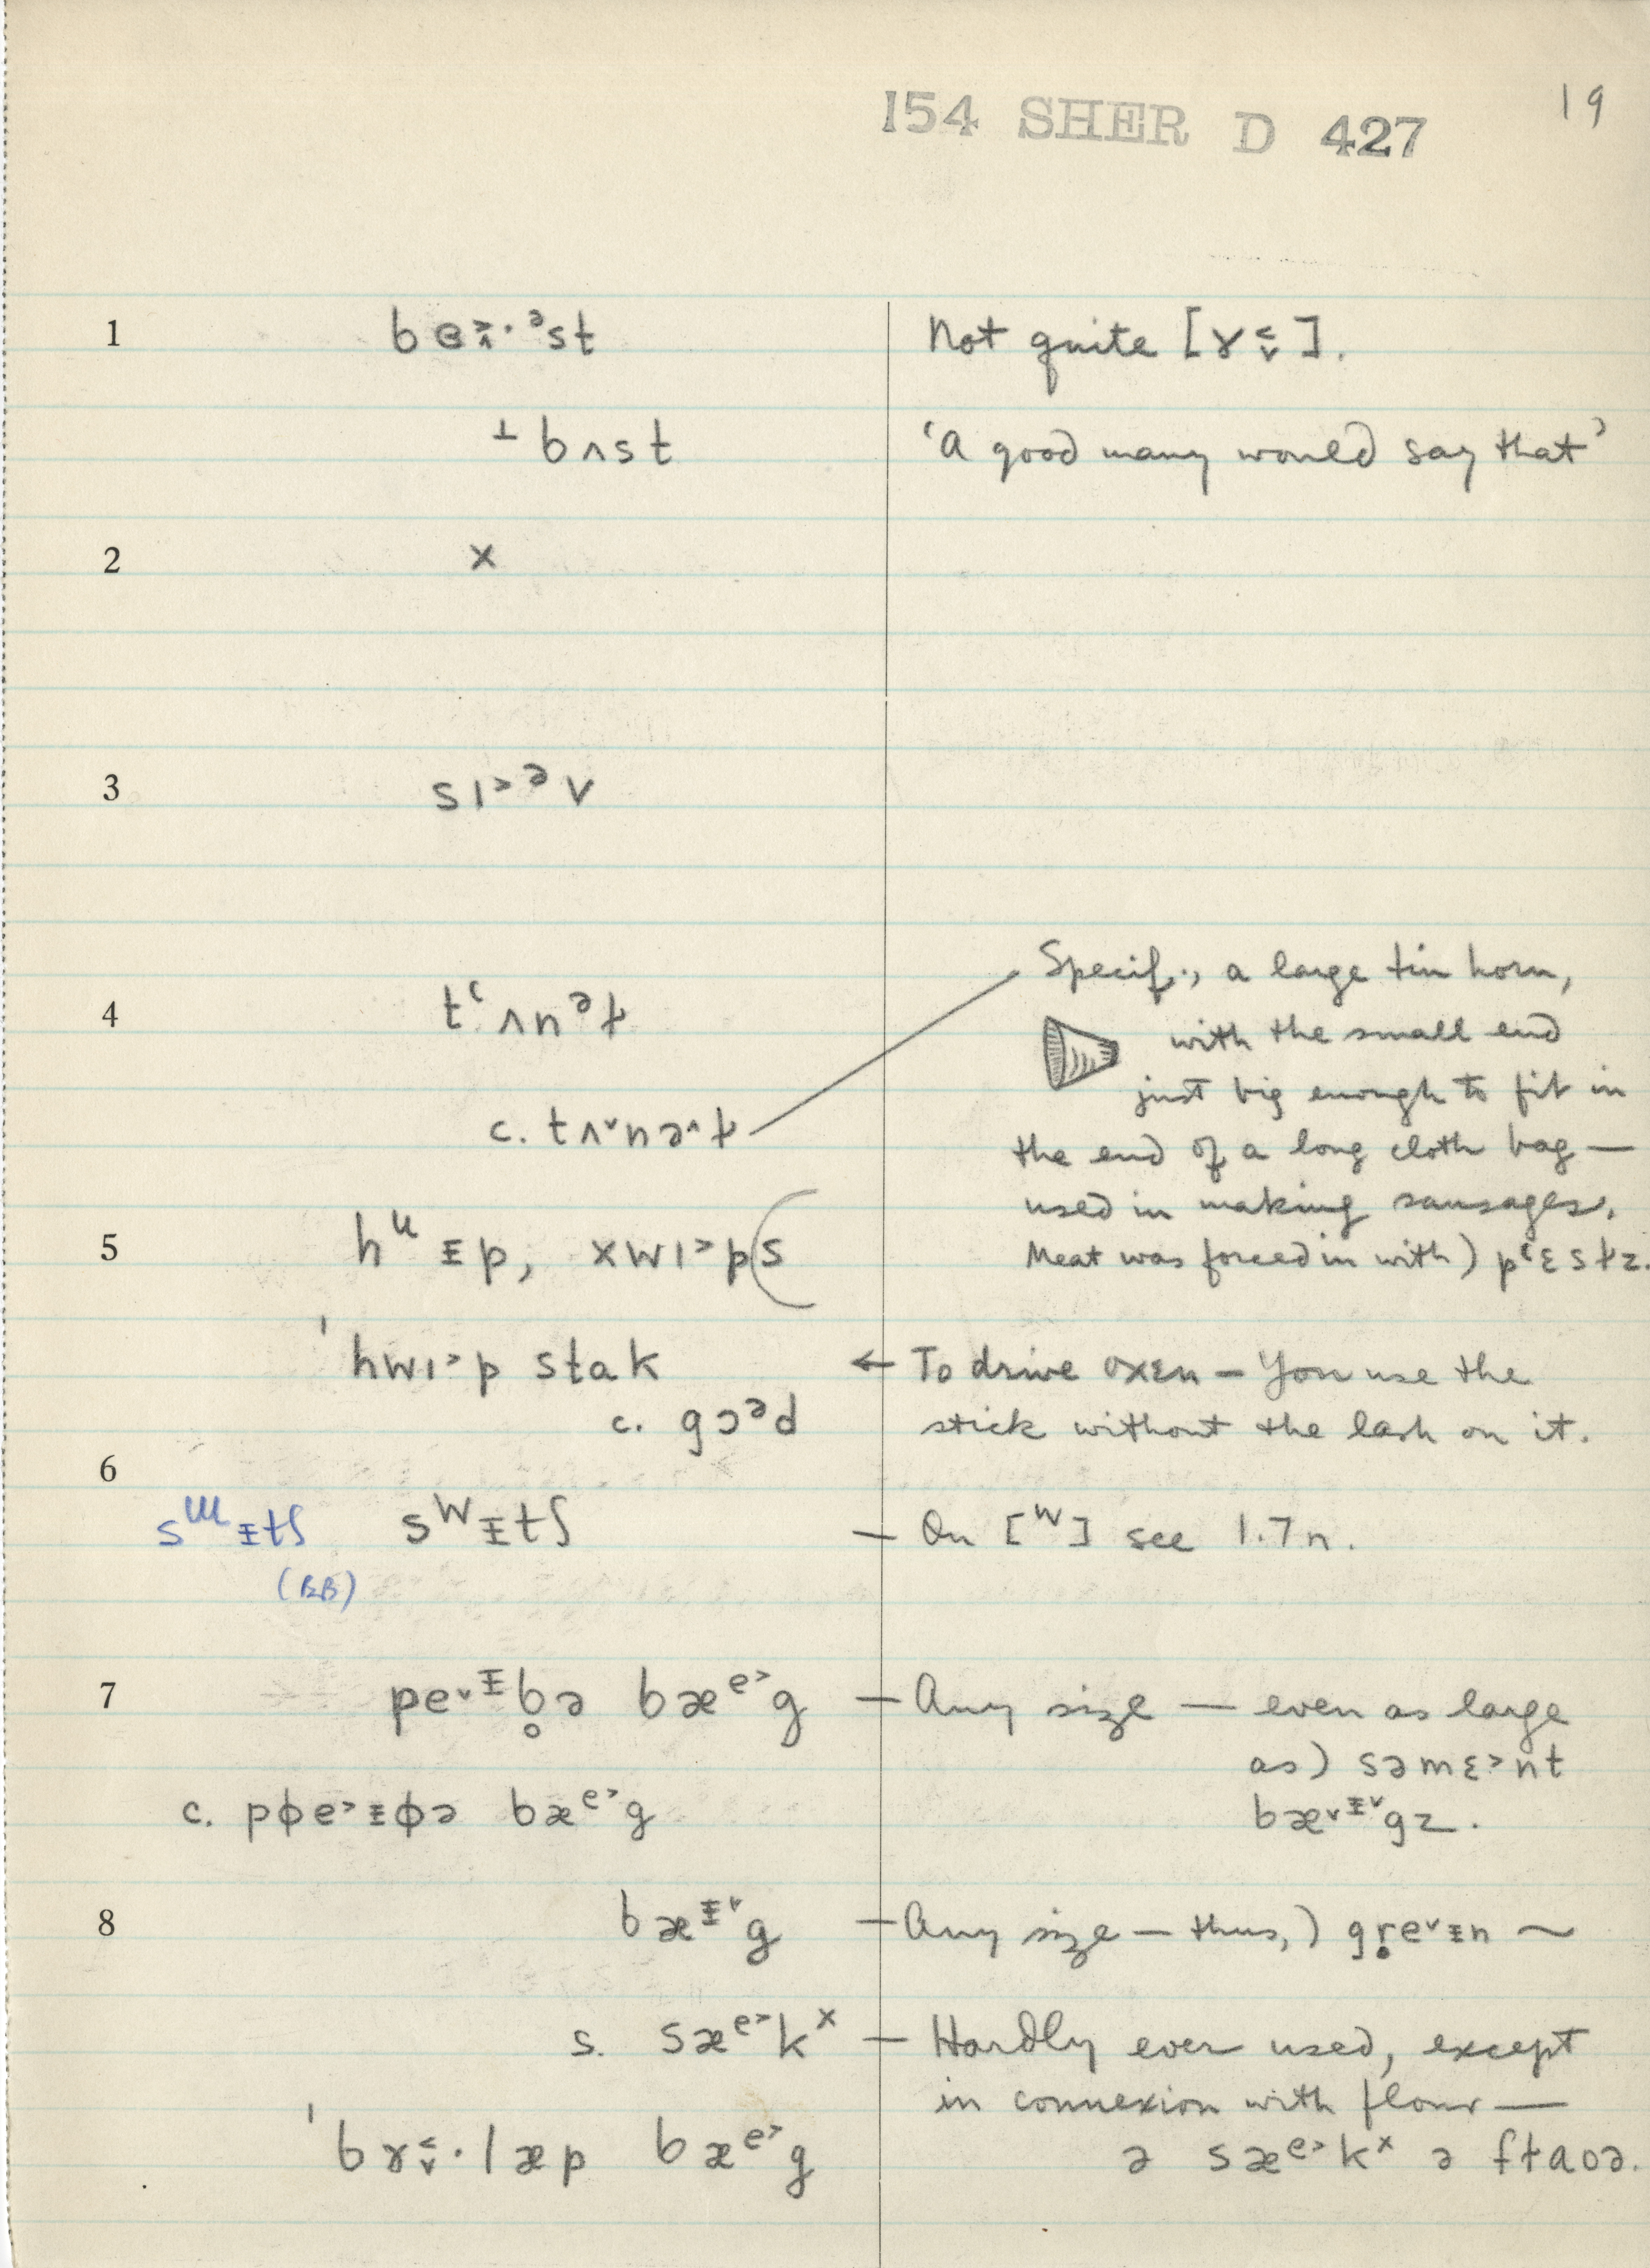 154 SHER D 427
19
1 bɵ˃̭·ᵊst Not quite [ɤ˂̬].
⊥ bʌst 'A good many would say that'
2 x
3 sɪ˃ᵊv
4 tʻʌnᵊɫ Specif., a large tin horn,
with the small end
just big enough to fit in
c. tʌ˅nə˄ɫ
the end of a long cloth bag —
used in making sausages.
5 hᶙᵻp, xwɪ˃p(s Meat was forced in with) pʻɛstz.
ˈhwɪ˃p stak ← To drive oxen — You use the
c. gɔᵊd stick without the lash on it.
6
sᵚᵻtʃ sᵂᵻtʃ — On [ᵂ] see 1.7n.
(BB)
7 pe˅ᵻb̥ə bæᵉ˃g — Any size — even as large
as) səmɛ˃nt
c. pɸe˃ᵻɸə bæᵉ˃g bæ˅ᵻ˅gz.
8 bæᵻ˅g — Any size — thus,) gṛe˅ᵻn ~
s. sæᵉ˃kˣ — Hardly ever used, except
in connexion with flour —
ˈbɤ˂̬·læp bæᵉ˃g ə sæᵉ˃kˣ ə fɫaʊə.